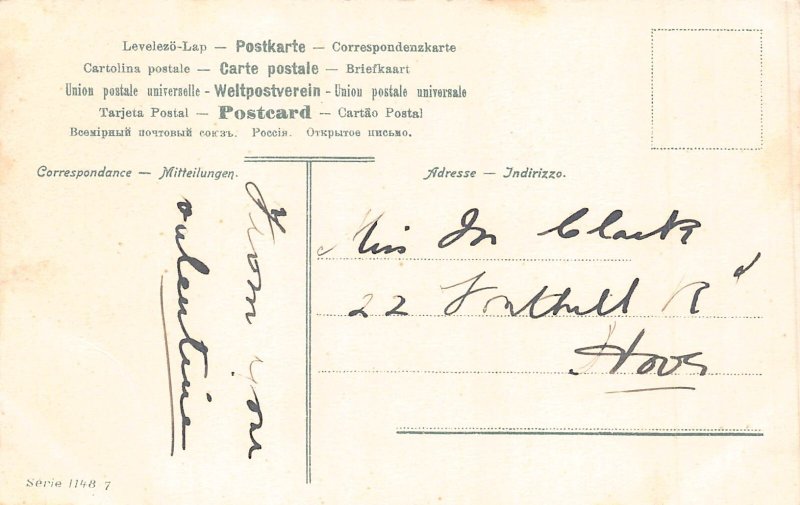 Levelezö-Lap — Postkarte — Correspondenzkarte
Cartolina postale — Carte postale — Briefkaart
Union postale universelle - Weltpostverein - Union postale universale
Tarjeta Postal — Postcard — Cartão Postal
Всемірный почтовый союзъ. Россія. Открытое письмо.
Correspondance — Mitteilungen.
Adresse — Indirizzo.
From your
valentine
Miss M Clark
22 Fonthill Rd
Hove
Serie 1148 7